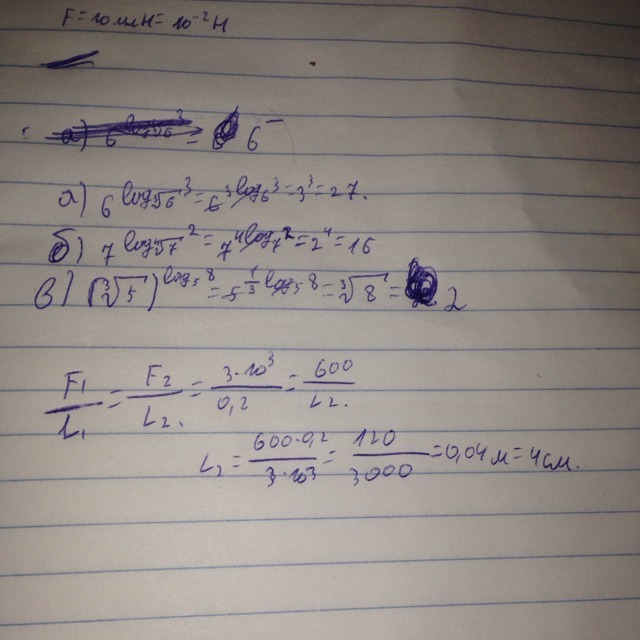 F = 10 мН = 10⁻² Н
а) 6
а) 6^(log_∛6 3) = 6^(3 log_6 3) = 3³ = 27.
б) 7^(log_∜7 2) = 7^(4 log_7 2) = 2⁴ = 16
в) (∛5)^(log_5 8) = 5^(1/3 log_5 8) = ∛8 = 2
F₁/L₁ = F₂/L₂. = 3·10³/0,2 = 600/L₂.
L₂ = 600·0,2/3·10³ = 120/3000 = 0,04 м = 4 см.